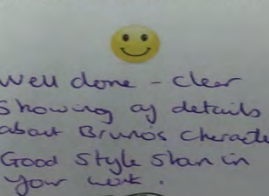 Well done - Clear
Showing of details
about Bruno's Characte
Good Style Shan in
your work.